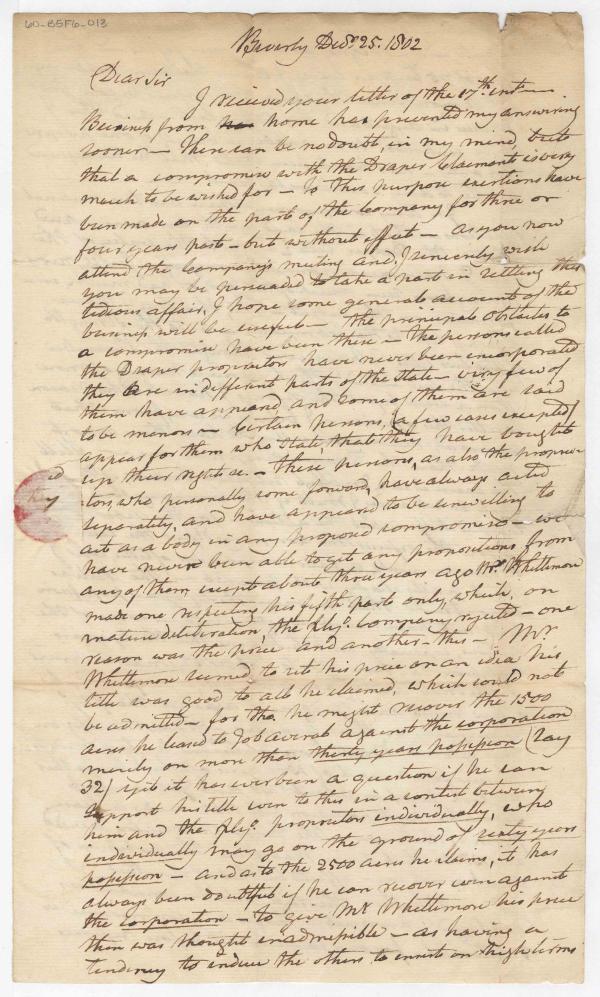 60-B5F6-013
Beverly Decr. 25. 1802
Dear Sir
I received your letter of the 17th. inst—
Business from home has prevented my answering
sooner — There can be no doubt, in my mind, but
that a compromise with the Draper Claimants is very
much to be wished for — to this purpose exertions have
been made on the part of the Company for three or
four years past — but without effect — as you now
attend the Company's meeting and, I sincerely wish
you may be persuaded to take a part in settling this
tedious affair, I hope some general account of the
business will be useful — the principal obstacles to
a compromise have been these — the persons called
the Draper proprietors have never been incorporated
they are in different parts of the State — very few of
them have appeared, and some of them are said
to be minors — Certain persons, (a few cases excepted)
appear for them who state, that they have bought
up their rights &c. — these persons, as also the proprie-
tors, who personally come forward, have always acted
separately, and have appeared to be unwilling to
act as a body in any proposed compromise — we
have never been able to get any propositions from
any of them, except about three years ago Mr. Whittemore
made one respecting his fifth parts only, which, on
mature deliberation, the Plyo. Company rejected — one
reason was the price and another — this — Mr
Whittemore seemed to set his price on an idea his
title was good to all he claimed, which could not
be admitted — for tho. he might recover the 1500
acres he leased to Job Averal against the corporation
merely on more than thirty years possession (say
32) yet it has ever been a question if he can
support his title even to this in a contest between
him and the Plyo. proprietors individually, who
individually may go on the ground of sixty years
possession — and as to the 2500 acres he claims, it has
always been doubtful if he can recover even against
the corporation — to give Mr Whittemore his price
then was thought inadmissible — as having a
tendency to induce the others to insist on high terms